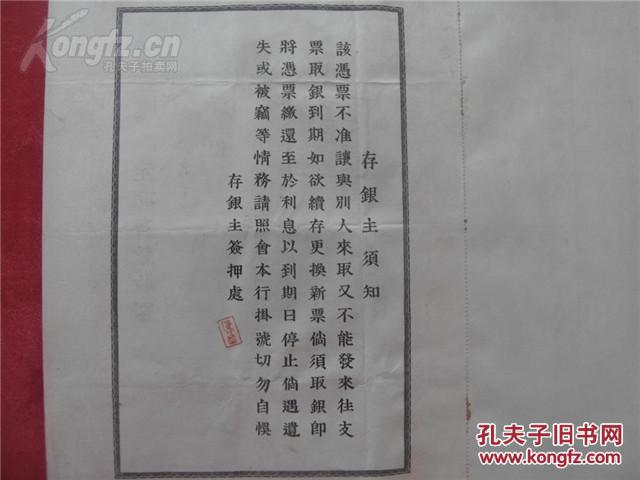 存銀主須知
該憑票不准讓與別人來取又不能發來往支
票取銀到期如欲續存更換新票倘須取銀即
將憑票繳還至於利息以到期日停止倘遇遺
失或被竊等情務請照會本行掛號切勿自悞
存銀主簽押處
Kongfz.cn
孔夫子拍卖网
孔夫子旧书网
www.kongfz.com